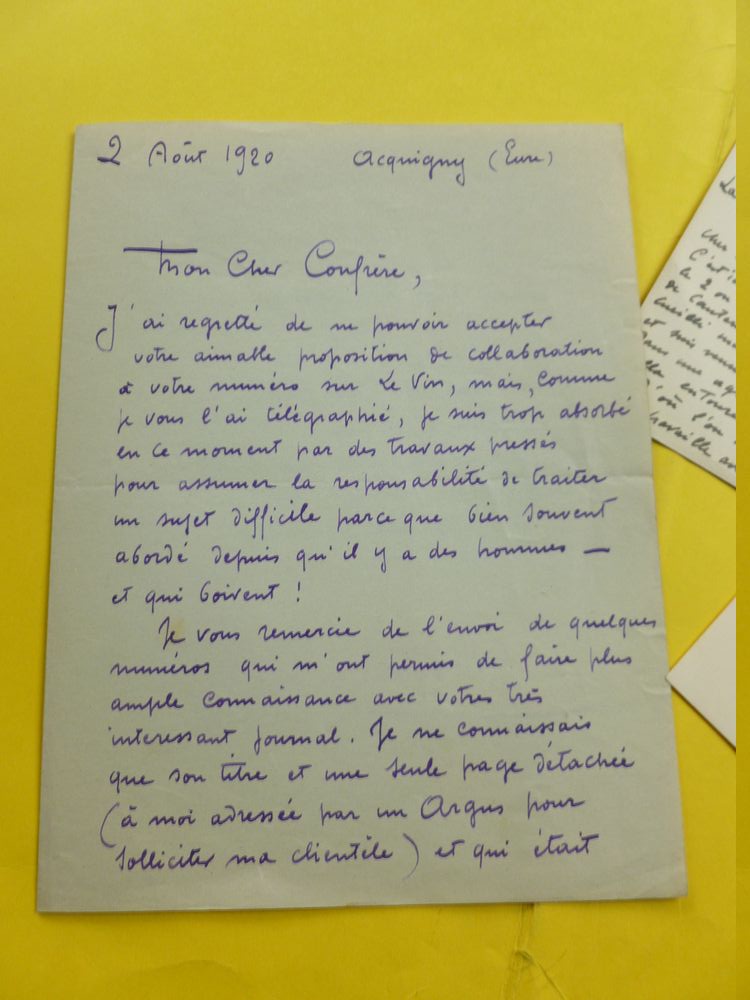 2 Août 1920 Acquigny (Eure)
Mon Cher Confrère,
J'ai regretté de ne pouvoir accepter
votre aimable proposition de collaboration
à votre numéro sur Le Vin, mais, comme
je vous l'ai télégraphié, je suis trop absorbé
en ce moment par des travaux pressés
pour assumer la responsabilité de traiter
un sujet difficile parce que bien souvent
abordé depuis qu'il y a des hommes —
et qui boivent !
Je vous remercie de l'envoi de quelques
numéros qui m'ont permis de faire plus
ample connaissance avec votres très
interessant journal. Je ne connaissais
que son titre et une seule page détachée
(à moi adressée par un Argus pour
solliciter ma clientèle) et qui était
cher
C'est
le 2 on
de
et suis
dans une
entoure
d'où l'on
travaille